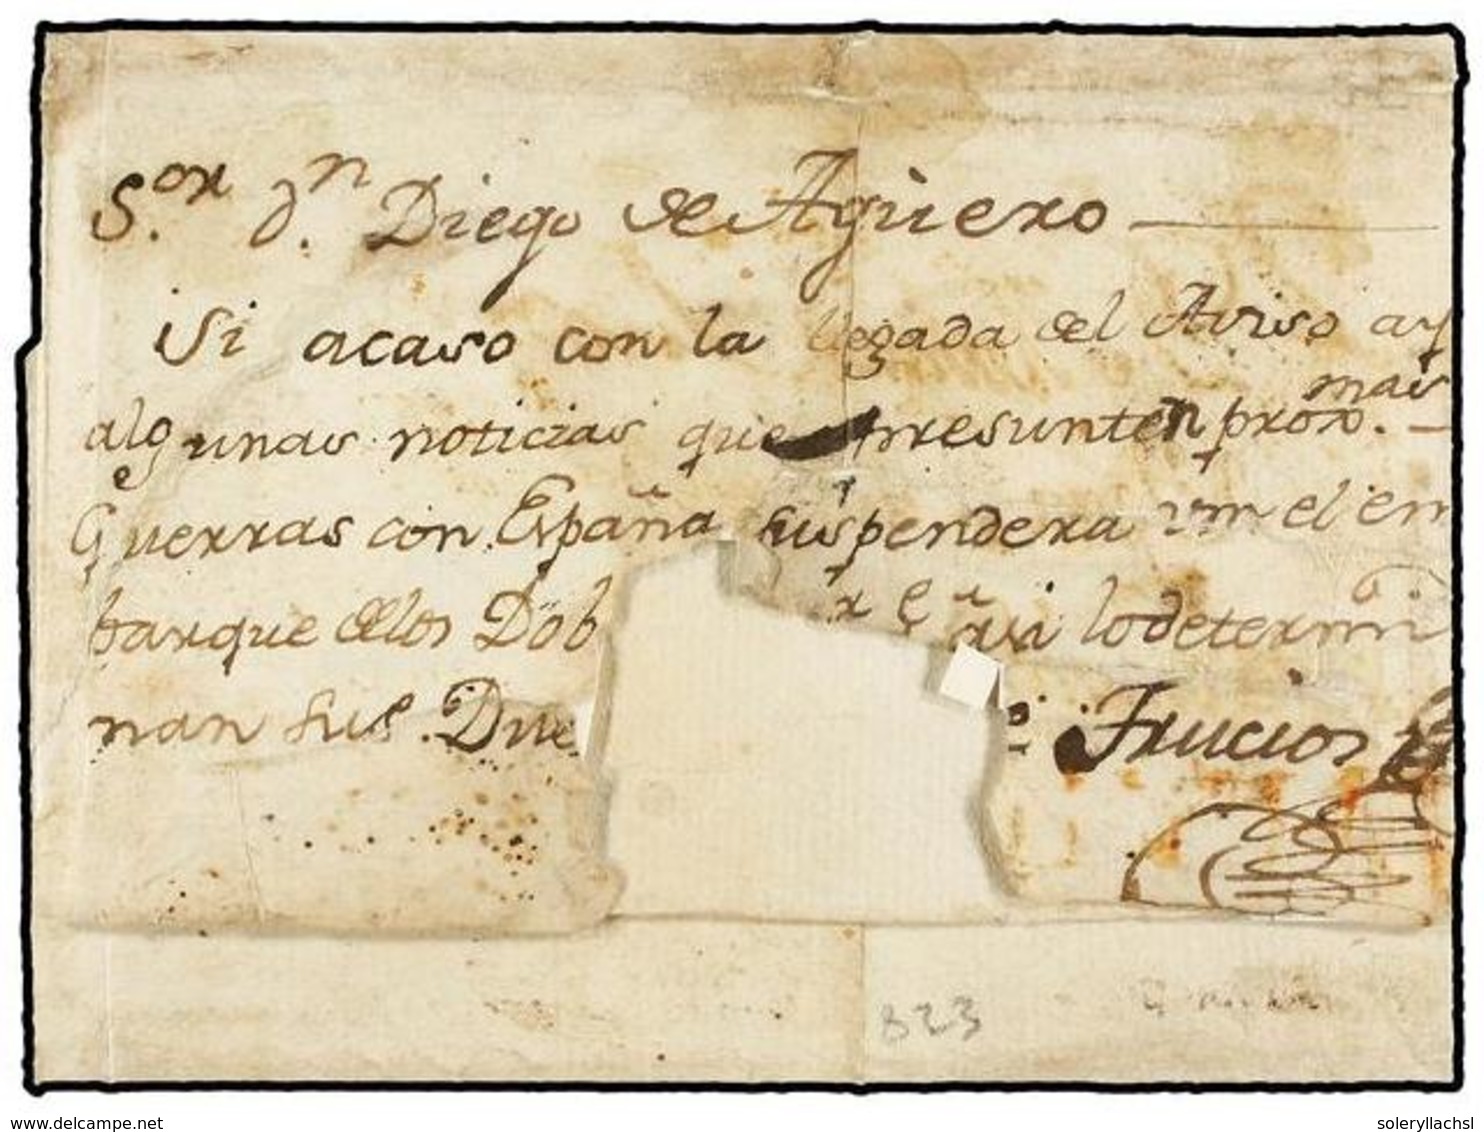 S.or d.n Diego de Agüero
Si acaso con la llegada del Aviso ay
algunas noticias que presunten prox.mas
Guerras con España suspendera vm el em
barque delos Dob r q.e asi lo determi
nan sus Due Frucios
823
www.delcampe.net
soleryllachsl